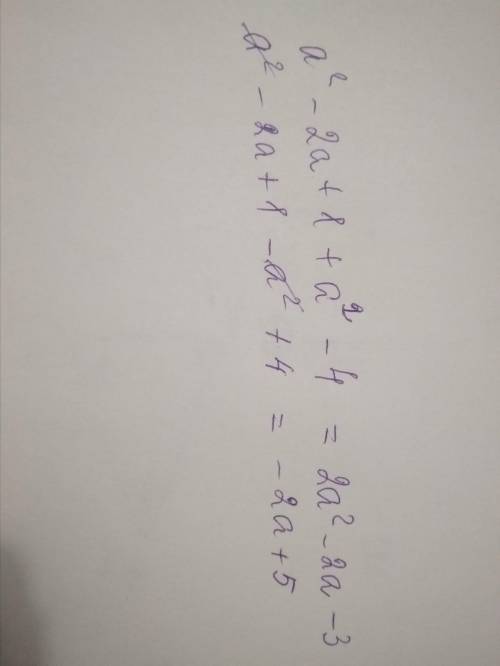 a² - 2a + 1 + a² - 4 = 2a² - 2a - 3
a² - 2a + 1 - a² + 4 = - 2a + 5